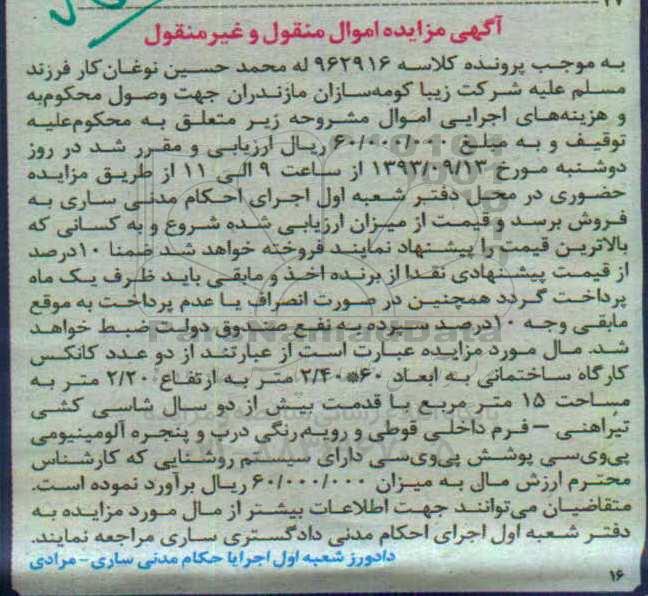 ۲۷
آگهی مزایده اموال منقول و غیر منقول
به موجب پرونده کلاسه ۹۶۲۹۱۶ له محمد حسین نوغان کار فرزند
مسلم علیه شرکت زیبا کومه‌سازان مازندران جهت وصول محکوم‌به
و هزینه‌های اجرایی اموال مشروحه زیر متعلق به محکوم‌علیه
توقیف و به مبلغ ۶۰/۰۰۰/۰۰۰ ریال ارزیابی و مقرر شد در روز
دوشنبه مورخ ۱۳۹۳/۰۹/۱۳ از ساعت ۹ الی ۱۱ از طریق مزایده
حضوری در محل دفتر شعبه اول اجرای احکام مدنی ساری به
فروش برسد و قیمت از میزان ارزیابی شده شروع و به کسانی که
بالاترین قیمت را پیشنهاد نمایند فروخته خواهد شد ضمنا ۱۰درصد
از قیمت پیشنهادی نقدا از برنده اخذ و مابقی باید ظرف یک ماه
پرداخت گردد همچنین در صورت انصراف یا عدم پرداخت به موقع
مابقی وجه ۱۰درصد سپرده به نفع صندوق دولت ضبط خواهد
شد. مال مورد مزایده عبارت است از عبارتند از دو عدد کانکس
کارگاه ساختمانی به ابعاد ۶۰*۲/۴۰ متر به ارتفاع ۲/۲۰ متر به
مساحت ۱۵ متر مربع با قدمت بیش از دو سال شاسی کشی
تیرآهنی – فرم داخلی قوطی و رویه رنگی درب و پنجره آلومینیومی
پی‌وی‌سی پوشش پی‌وی‌سی دارای سیستم روشنایی که کارشناس
محترم ارزش مال به میزان ۶۰/۰۰۰/۰۰۰ ریال برآورد نموده است.
متقاضیان می‌توانند جهت اطلاعات بیشتر از مال مورد مزایده به
دفتر شعبه اول اجرای احکام مدنی دادگستری ساری مراجعه نمایند.
دادورز شعبه اول اجرایا حکام مدنی ساری – مرادی
۱۶
ParsNamadData